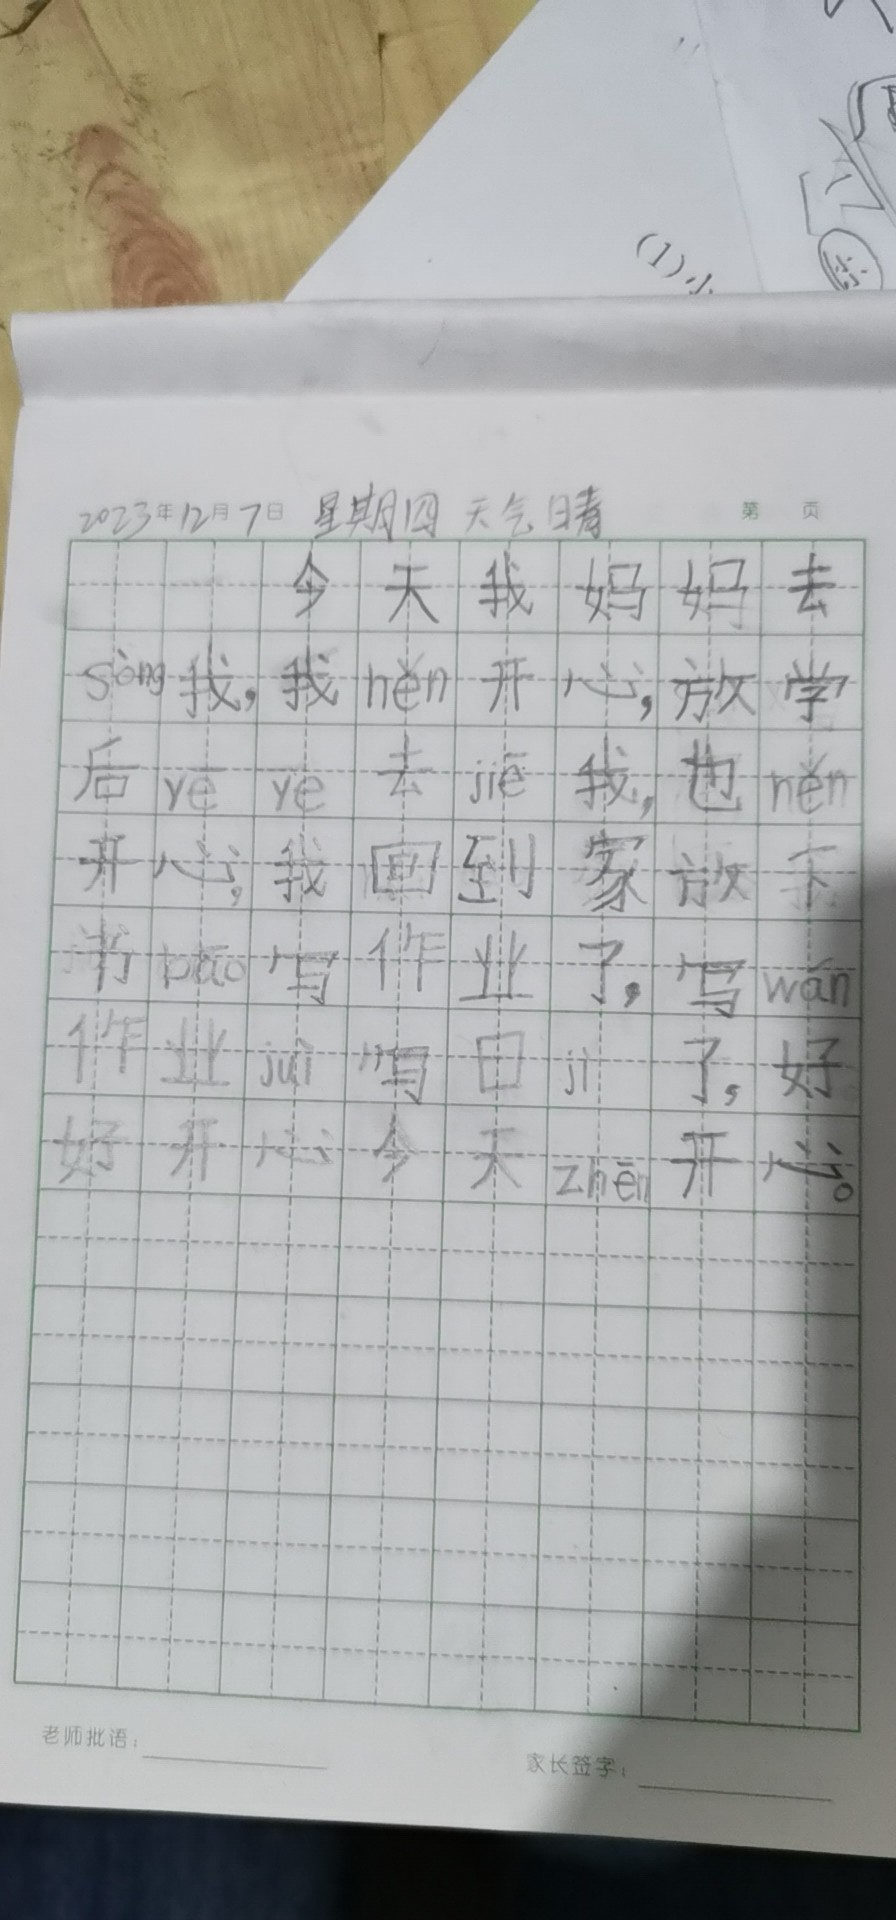 (1)小
2023年12月7日 星期四 天气晴 第 页
今天我妈妈去
sòng我,我hěn开心,放学
后yē ye去jiē我,也hěn
开心,我回到家放下
书bāo写作业了,写wán
作业juì写日jì了,好
好开心今天zhēn开心。
老师批语:
家长签字: